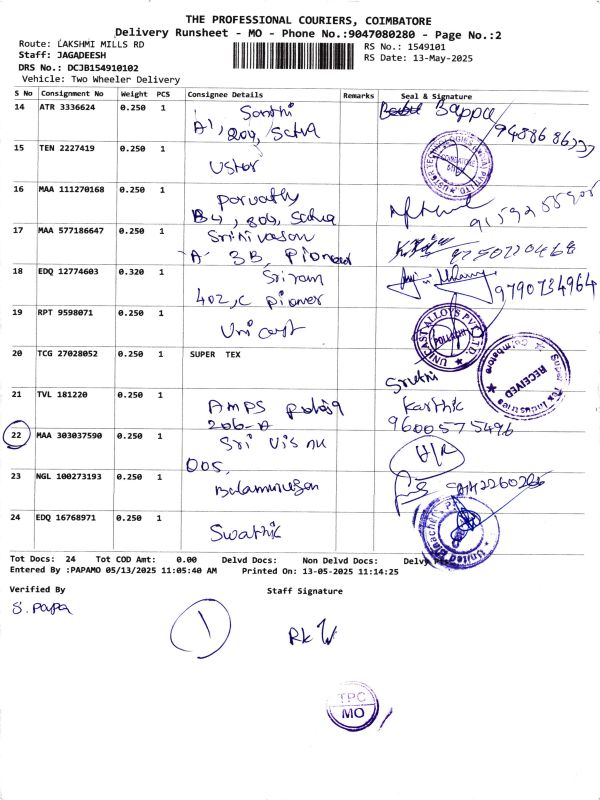 THE PROFESSIONAL COURIERS, COIMBATORE
Delivery Runsheet - MO - Phone No.:9047080280 - Page No.:2
Route: LAKSHMI MILLS RD
RS No.: 1549101
Staff: JAGADEESH
RS Date: 13-May-2025
DRS No.: DCJB154910102
Vehicle: Two Wheeler Delivery
S No Consignment No Weight PCS Consignee Details Remarks Seal & Signature
14 ATR 3336624 0.250 1 Santhi Babu Bappu
A1, 209, Satva 9488686333
15 TEN 2227419 0.250 1
Uster
16 MAA 111270168 0.250 1 Parvathy
B4, 803, Satva
17 MAA 577186647 0.250 1 Srinivasan
A- 3B, Pioneer 9750770468
18 EDQ 12774603 0.320 1 Sriram
402, C Pioneer 9790734964
19 RPT 9598071 0.250 1
Unicast
UNICAST ALLOYS PVT LTD.
POLLACHI
20 TCG 27028052 0.250 1 SUPER TEX
Sruthi
Super Tex Industries
RECEIVED
Coimbatore
21 TVL 181220 0.250 1 AMPS Karthik
206-A 9600575496
22 MAA 303037590 0.250 1 Sri Vishnu
005, H/R
23 NGL 100273193 0.250 1
Balamurugan
24 EDQ 16768971 0.250 1
Swathik
United Bleachers
Tot Docs: 24 Tot COD Amt: 0.00 Delvd Docs: Non Delvd Docs:
Entered By :PAPAMO 05/13/2025 11:05:40 AM Printed On: 13-05-2025 11:14:25
Verified By Staff Signature
S. Papa
1
TPC
MO